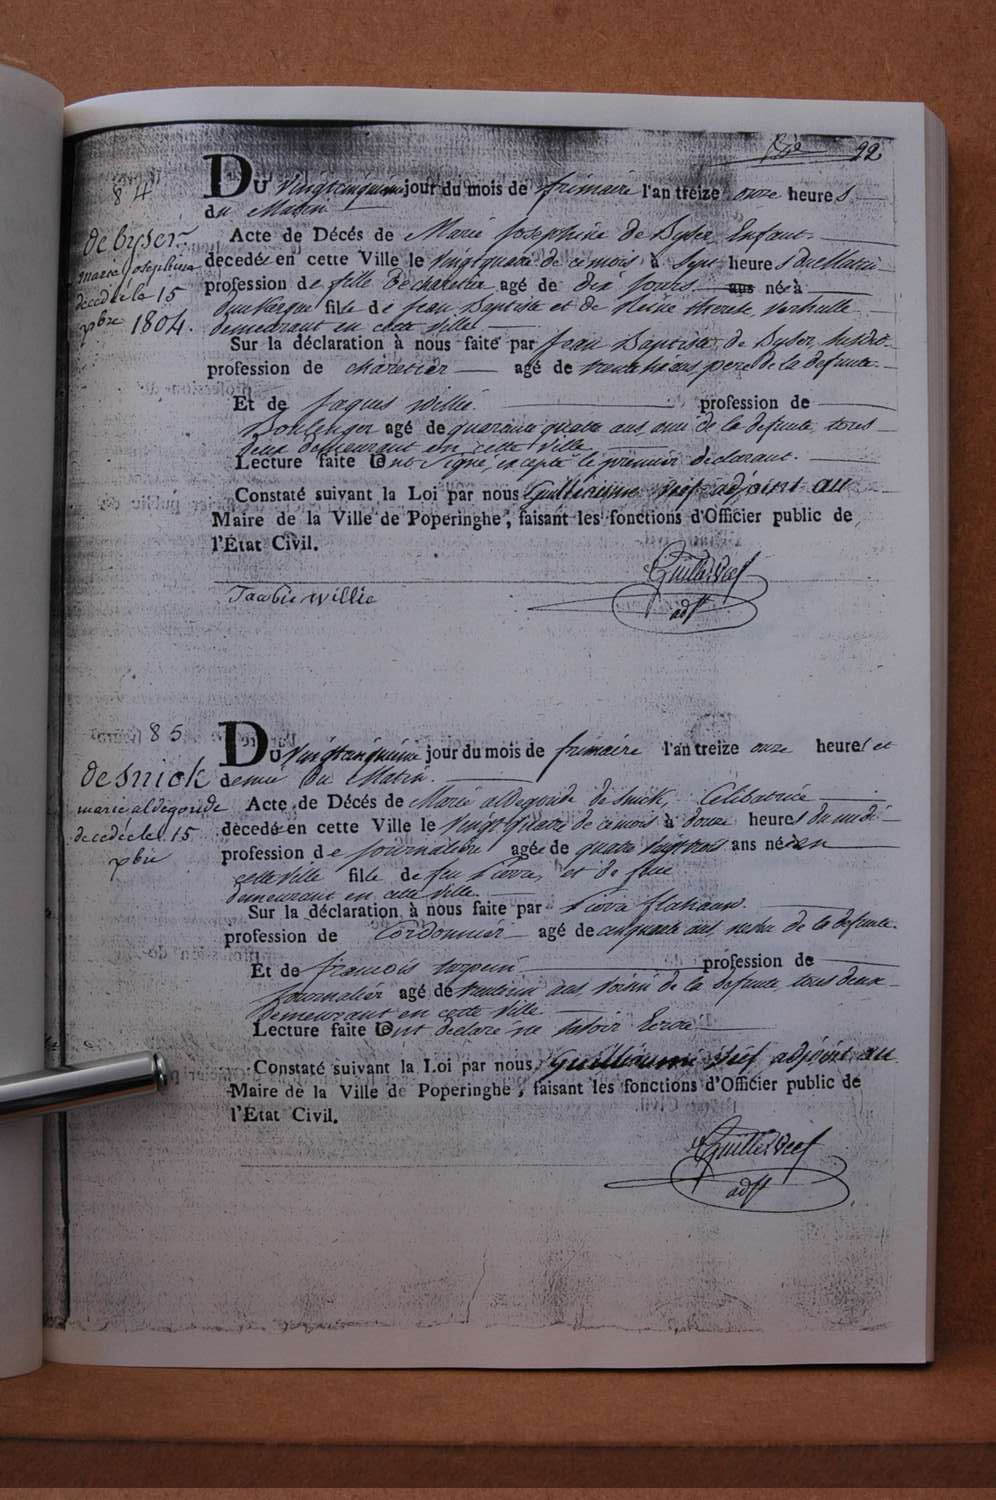 22
84
de Cyser
marie Josephina
decedé le 15
xbre 1804.
DU vingtcinquieme jour du mois de frimaire l'an treize onze heures
du Matin
Acte de Décés de Marie Josephine de Cyser Enfant
decedé en cette Ville le vingtquatre de ce mois à sept heures du Matin
profession de fille de charetier agé de dix jours ans né à
Dunkerque fille de Jean Baptiste et de Reine therese
demeurant en cette ville
Sur la déclaration à nous faite par Jean Baptiste de Cyser susdit
profession de charetier agé de ans pere de la defunte
Et de Jaques Willie profession de
Boulenger agé de quarante quatre ans ami de la defunte, tous
deux demeurant en cette Ville
Lecture faite Ont signé, excepté le premier déclarant.
Constaté suivant la Loi par nous Guilliaume Neef adjoint au
Maire de la Ville de Poperinghe, faisant les fonctions d'Officier public de
l'État Civil.
Jacobus Willie
Guille. Neef
adjt
85
desnick
marie aldegonde
decedé le 15
xbre
DU vingtcinquieme jour du mois de frimaire l'an treize onze heures et
demie du Matin.
Acte de Décés de Marie aldegonde de Snick, Celibatrice
decedé en cette Ville le vingt quatre de ce mois à douze heures du midi
profession de journaliere agée de quatre vingt ans né en
cette Ville fille de feu Pierre, et de feue
demeurant en cette ville.
Sur la déclaration à nous faite par Pierre
profession de Cordonnier agé de cinquante ans, de la defunte.
Et de francois profession de
journalier agé de ans, voisin de la defunte, tous deux
demeurant en cette Ville
Lecture faite Ont declaré ne savoir Ecrire
Constaté suivant la Loi par nous Guilliaume Neef adjoint au
Maire de la Ville de Poperinghe, faisant les fonctions d'Officier public de
l'État Civil.
Guille. Neef
adjt